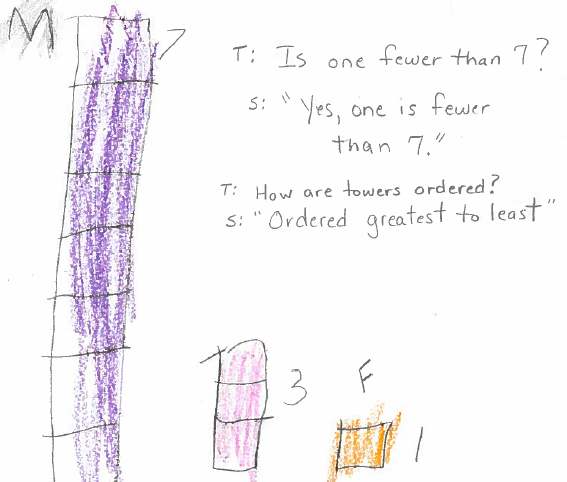 M
7
T: Is one fewer than 7?
S: "Yes, one is fewer
than 7."
T: How are towers ordered?
S: "Ordered greatest to least"
3
F
1